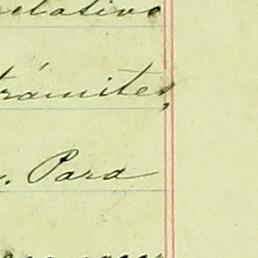 relativo
trámites,
. Para